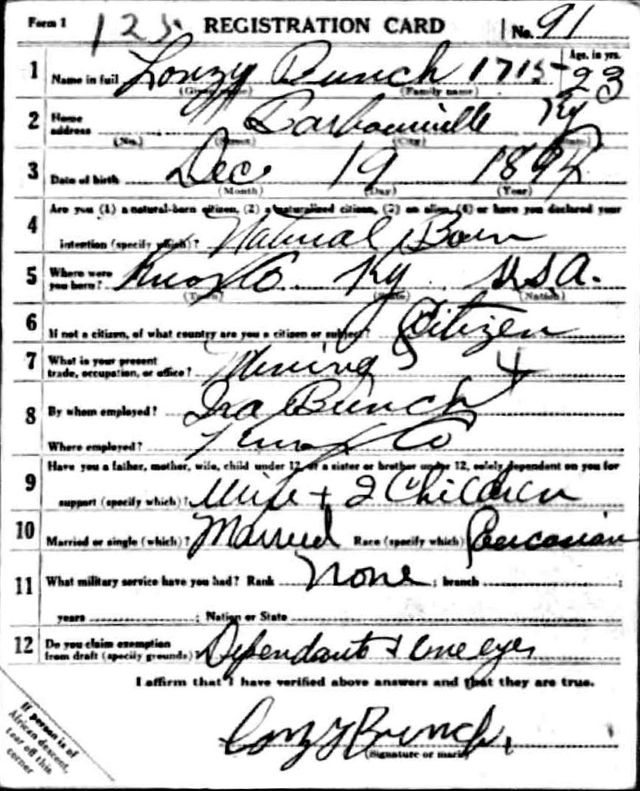 Form 1 125 REGISTRATION CARD No. 91
1 Name in full Lonzy Bunch 1715 Age, in yrs. 23
(Given name) (Family name)
2 Home address Barbourville Ky
(No.) (Street) (City) (State)
3 Date of birth Dec 19 1894
(Month) (Day) (Year)
4 Are you (1) a natural-born citizen, (2) a naturalized citizen, (3) an alien, (4) or have you declared your
intention (specify which)? Natural Born
5 Where were you born? Knox Co Ky USA.
(Town) (State) (Nation)
6 If not a citizen, of what country are you a citizen or subject? Citizen
7 What is your present trade, occupation, or office? Mining 4
8 By whom employed? Ira Bunch
Where employed? Knox Co
9 Have you a father, mother, wife, child under 12, or a sister or brother under 12, solely dependent on you for
support (specify which)? Wife + 2 Children
10 Married or single (which)? Married Race (specify which)? Caucasian
11 What military service have you had? Rank None ; branch ;
years ; Nation or State
12 Do you claim exemption from draft (specify grounds)? Dependants + One eye
I affirm that I have verified above answers and that they are true.
Lonzy Bunch.
(Signature or mark)
If person is of
African descent,
tear off this
corner